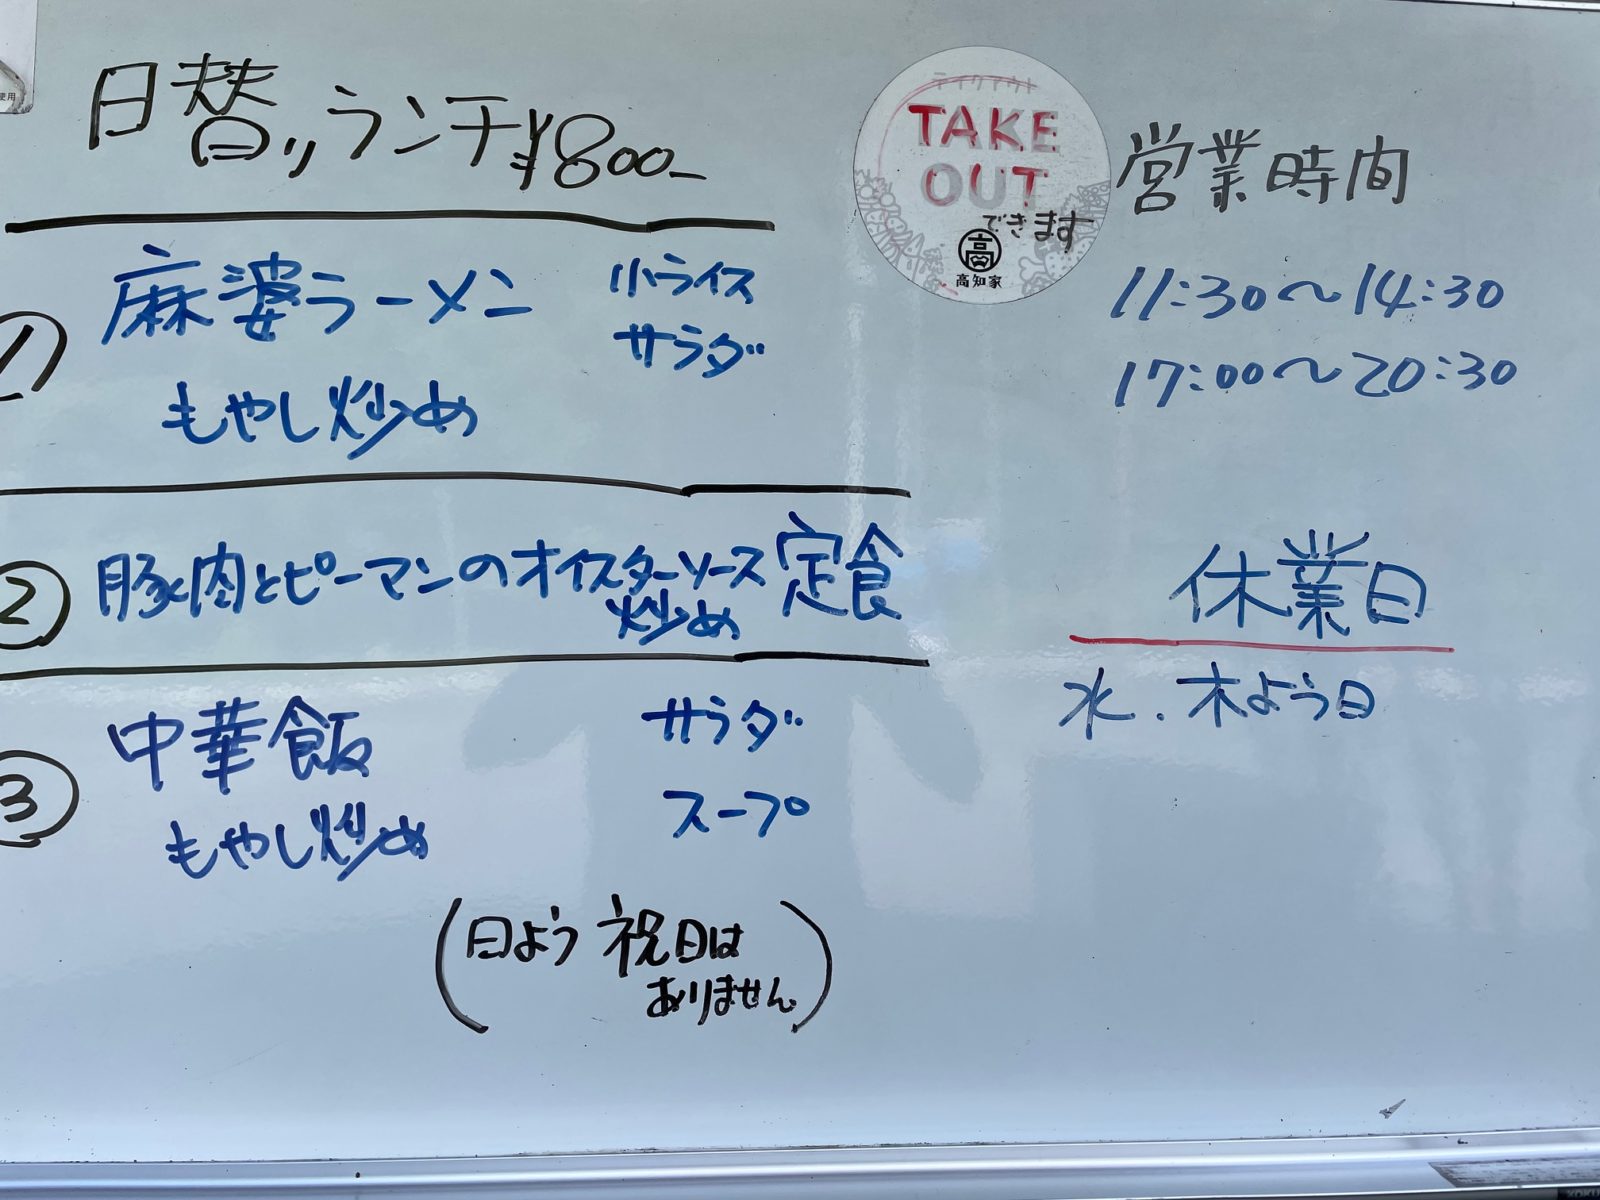 日替りランチ¥800-
① 麻婆ラーメン 小ライス
サラダ
もやし炒め
② 豚肉とピーマンのオイスターソース炒め定食
③ 中華飯 サラダ
もやし炒め スープ
(日よう 祝日は
ありません)
テイクアウト
TAKE
OUT
できます
高
高知家
営業時間
11:30〜14:30
17:00〜20:30
休業日
水.木よう日
使用